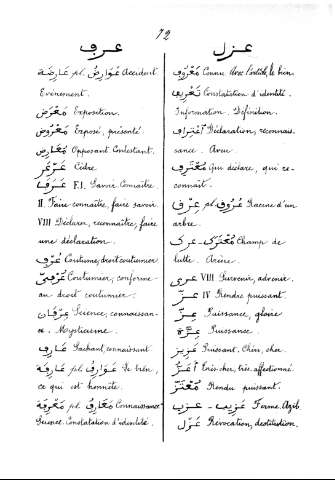 72
عرف
عَارِضَة pl. عَوَارِضُ Accident
Evènement.
مَعْرَض Exposition.
مَعْرُوض Exposé, présenté.
مُعَارِض Opposant. Contestant.
عَرْعَر Cèdre.
عَرَفَ F.I. Savoir. Connaître.
II. Faire connaître, faire savoir.
VIII Déclarer, reconnaître, faire
une déclaration.
عُرْف Coutume, droit coutumier.
عُرْفِىّ Coutumier, conforme
au droit coutumier.
عِرْفَان Science, connaissan-
ce. Mysticisme.
عَارِف Sachant, connaissant
عَارِفَة pl. عَوَارِفُ Le bien,
ce qui est honnête.
مَعْرِفَة pl. مَعَارِفُ Connaissance
Science. Constatation d'identité.
عزل
مَعْرُوف Connu. Avec l'article, le bien.
تَعْرِيف Constatation d'identité.
Information. Définition.
اِعْتِرَاف Déclaration, reconnais-
sance. Aveu.
مُعْتَرِف Qui déclare, qui re-
connaît.
عِرْق pl. عُرُوق Racine d'un
arbre.
عرك - مُعْتَرَك Champ de
lutte. Arène.
عرى VIII Survenir, advenir.
عزّ IV Rendre puissant.
عِزّ Puissance, gloire
عِزَّة Puissance.
عَزِيز Puissant. Chéri, cher.
أَعَزّ Très cher, très affectionné.
مُعْتَزّ Rendu puissant.
عزب - عَزِيب Ferme. Agib.
عَزْل Révocation, destitution.